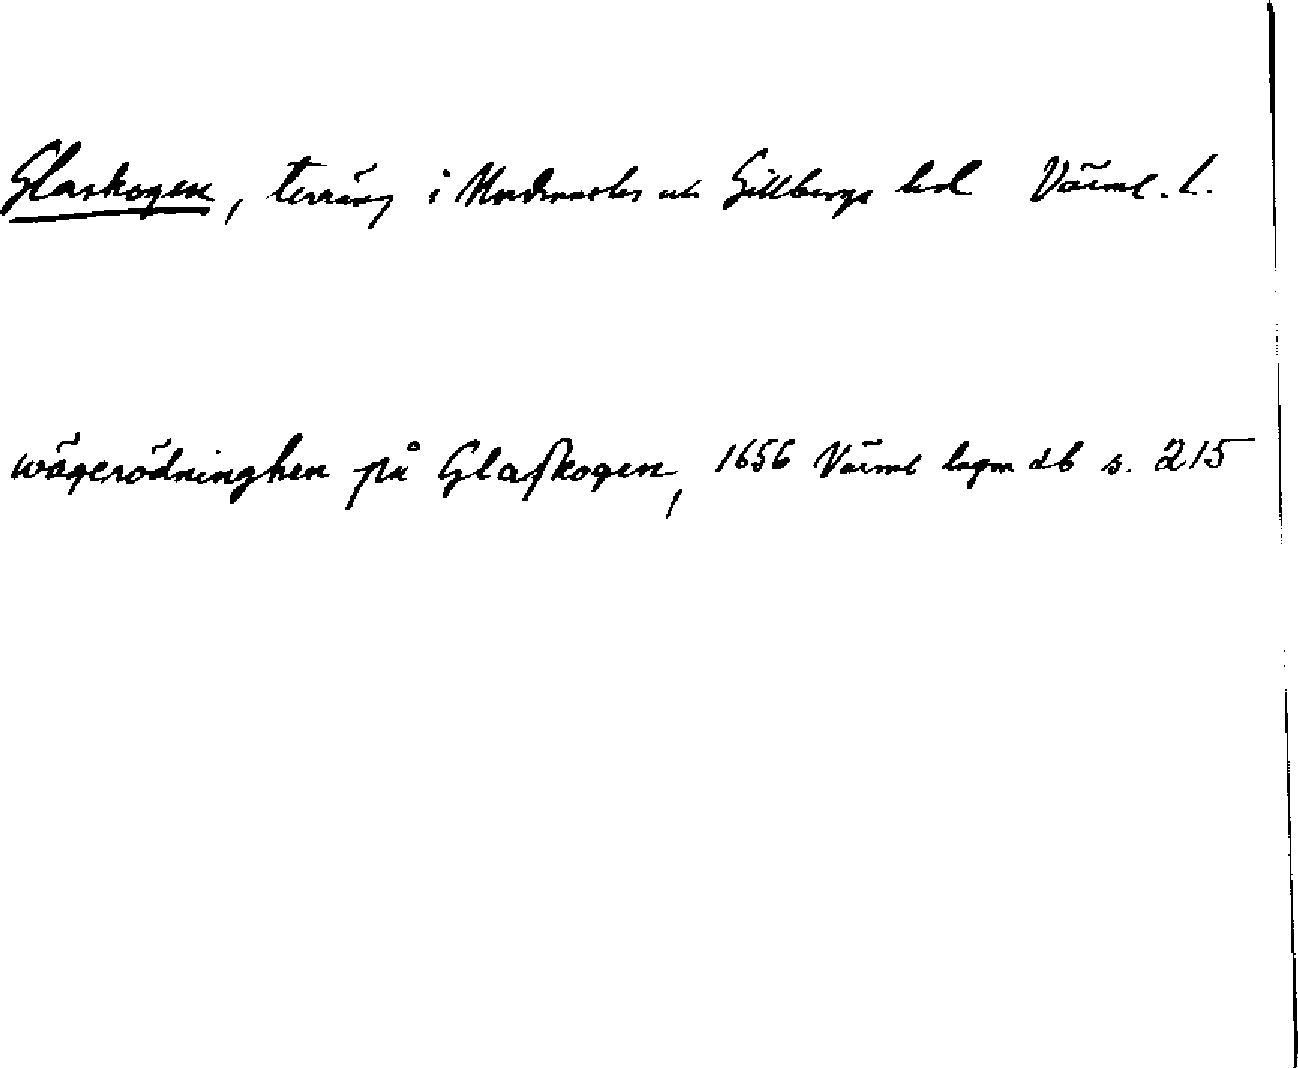 Glaskogen, terräng i Nordmarks och Gillbergs hd Värml. l.
wägerödninghen på Glaſkogen, 1656 Värml lagm db s. 215